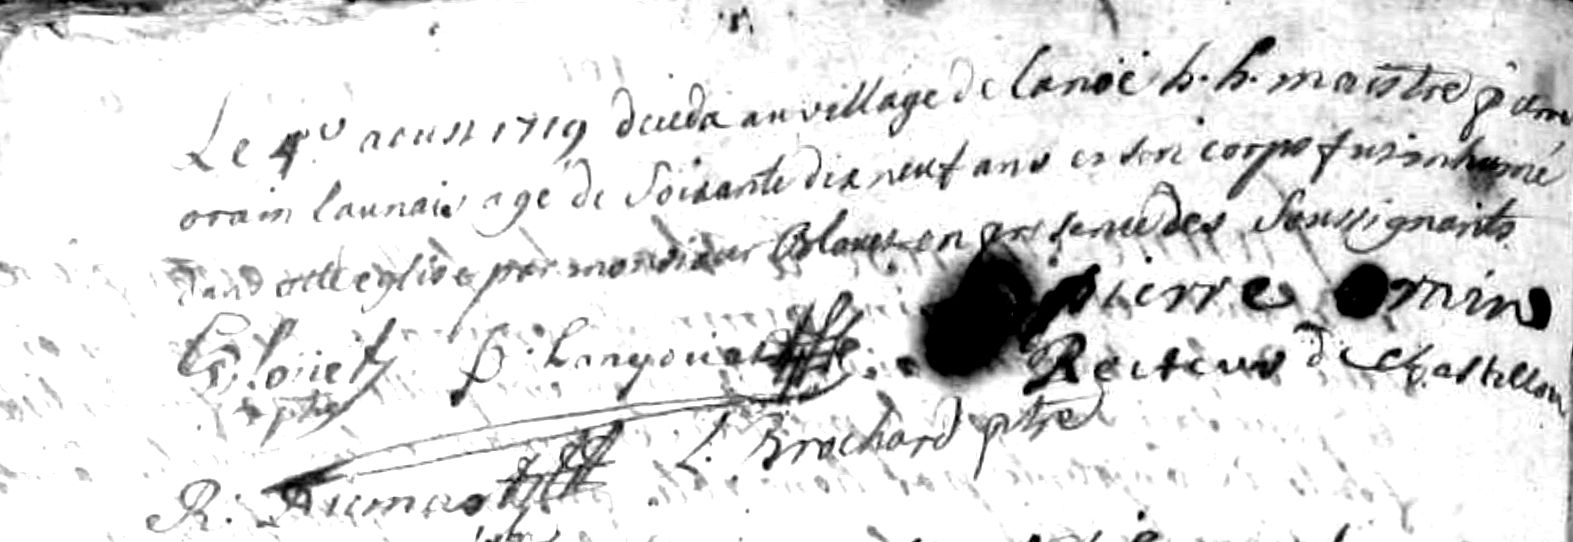 Le 4e aoust 1719 deceda au village de lanoë h. h. maistre pierre
orain launais agé de Soixante dix neuf ans et son corps fut inhumé
dans cette eglise par monsieur en presence des Soussignants
pierre orain
ptre Recteur de Chastellon
L. Brochard ptre
R.